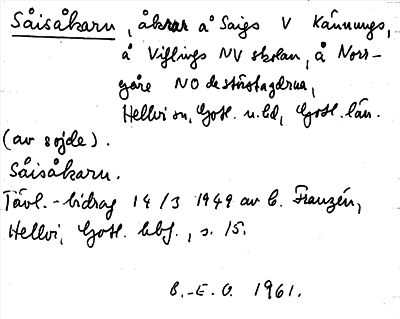 Såisåkarn, åkrar å Saigs V Kännungs,
å Viflings NV skolan, å Norr-
gåre NO de störstagdrna,
Hellvi sn, Gotl. n. hd, Gotl. län.
(av sojde).
Såisåkarn.
Tävl.-bidrag 14/3 1949 av C. Franzén,
Hellvi, Gotl. hbf., s. 15.
B.-E. O. 1961.